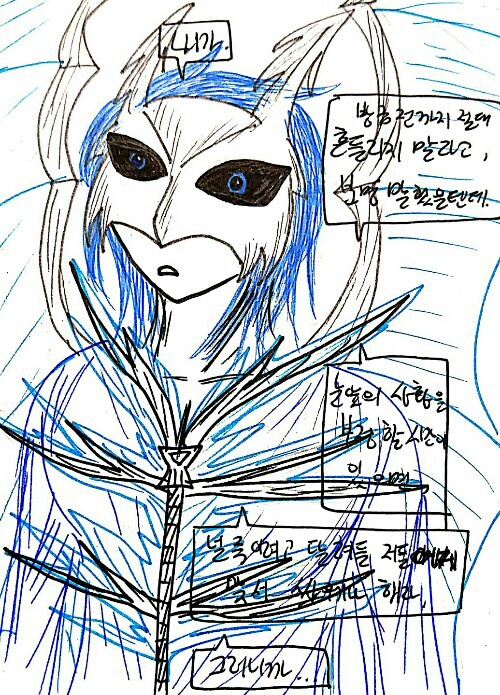 니가.
방금 전까지 절대
흔들리지 말라고,
분명 말했을텐데.
눈앞의 상황을
부정할 시간이
있으면,
널 죽이려고 달려들 저들에게
맞서 싸우거나 해라.
그러니까...